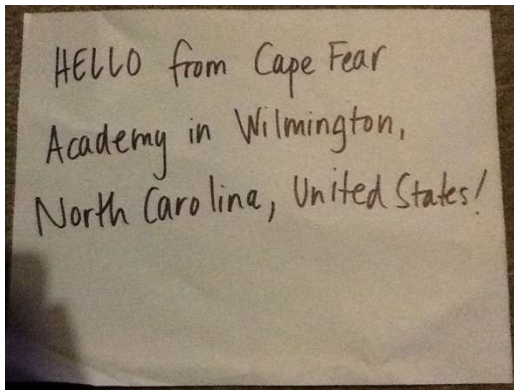 HELLO from Cape Fear
Academy in Wilmington,
North Carolina, United States!